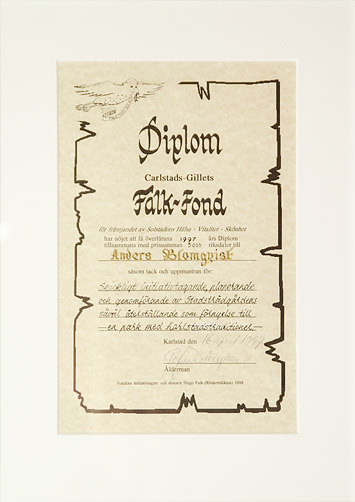 Diplom
Carlstads-Gillets
Falk-Fond
för främjandet av Solstadens Hälsa - Vitalitet - Skönhet
har nöjet att få överlämna 1997 års Diplom
tillsammans med prissumman 5000 riksdaler till
Anders Blomqvist
såsom tack och uppmuntran för:
initiativtagande, planerande
och genomförande av Stadsträdgårdens
såväl återställande som förnyelse till
en park med Karlstadstraditioner
Karlstad den 16 april 1997
Ålderman
Fondens initiativtagare och donator Hugo Falk (Riddarskölden) 1988